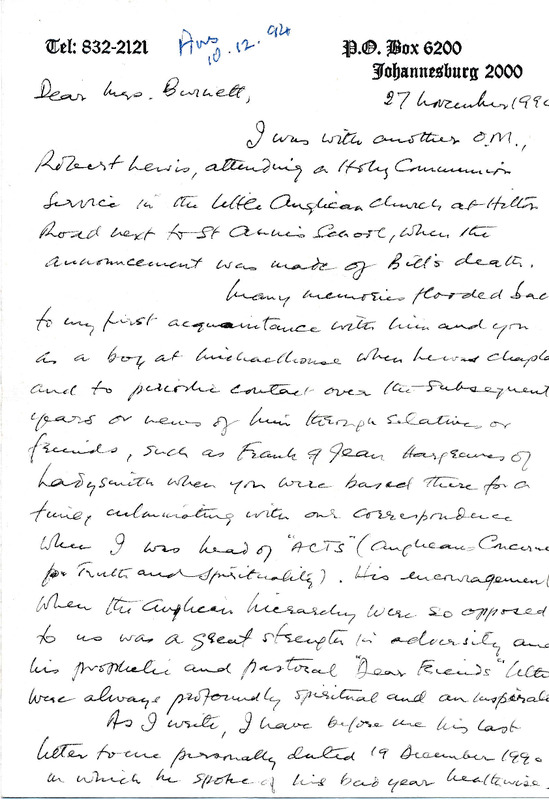 Tel: 832-2121
Ans
10.12.94
P.O. Box 6200
Johannesburg 2000
Dear Mrs. Burnett,
27 November 199
I was with another O.M.,
Robert Lewis, attending a Holy Communion
Service in the little Anglican Church at Hilton
Road next to St Anne's School, when the
announcement was made of Bill's death.
Many memories flooded bac
to my first acquaintance with him and you
as a boy at Michaelhouse when he was chapla
and to periodic contact over the subsequent
years or news of him through relatives or
friends, such as Frank & Jean Hargreaves of
Ladysmith when you were based there for a
time, culminating with our correspondence
when I was head of "ACTS" (Anglicans Concerne
for Truth and Spirituality). His encouragement
when the Anglican hierarchy were so opposed
to us was a great strength in adversity and
his prophetic and pastoral "Dear Friends" lette
were always profoundly spiritual and an inspirati
As I write, I have before me his last
letter to me personally dated 19 December 199
in which he spoke of his bad year healthwise.